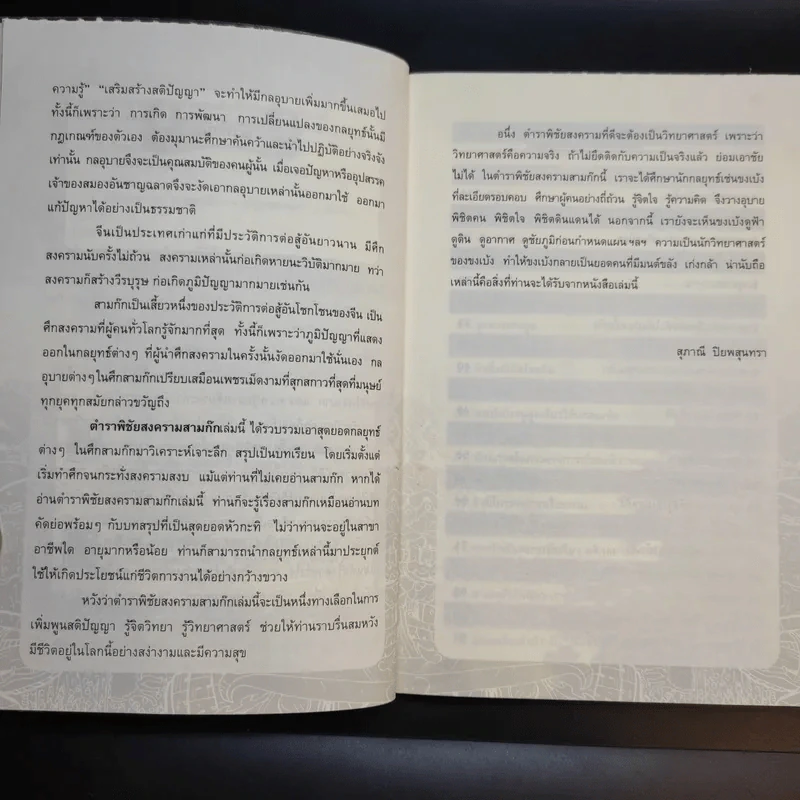 ความรู้” “เสริมสร้างสติปัญญา” จะทำให้มีกลอุบายเพิ่มมากขึ้นเสมอไป
ทั้งนี้ก็เพราะว่า การเกิด การพัฒนา การเปลี่ยนแปลงของกลยุทธ์นั้นมี
กฎเกณฑ์ของตัวเอง ต้องมุมานะศึกษาค้นคว้าและนำไปปฏิบัติอย่างจริงจัง
เท่านั้น กลอุบายจึงจะเป็นคุณสมบัติของคนผู้นั้น เมื่อเจอปัญหาหรืออุปสรรค
เจ้าของสมองอันชาญฉลาดจึงจะงัดเอากลอุบายเหล่านั้นออกมาใช้ ออกมา
แก้ปัญหาได้อย่างเป็นธรรมชาติ
จีนเป็นประเทศเก่าแก่ที่มีประวัติการต่อสู้อันยาวนาน มีศึก
สงครามนับครั้งไม่ถ้วน สงครามเหล่านั้นก่อเกิดหายนะวิบัติมากมาย ทว่า
สงครามก็สร้างวีรบุรุษ ก่อเกิดภูมิปัญญามากมายเช่นกัน
สามก๊กเป็นเสี้ยวหนึ่งของประวัติการต่อสู้อันโชกโชนของจีน เป็น
ศึกสงครามที่ผู้คนทั่วโลกรู้จักมากที่สุด ทั้งนี้ก็เพราะว่าภูมิปัญญาที่แสดง
ออกในกลยุทธ์ต่างๆ ที่ผู้นำศึกสงครามในครั้งนั้นงัดออกมาใช้นั่นเอง กล
อุบายต่างๆในศึกสามก๊กเปรียบเสมือนเพชรเม็ดงามที่สุกสกาวที่สุดที่มนุษย์
ทุกยุคทุกสมัยกล่าวขวัญถึง
ตำราพิชัยสงครามสามก๊กเล่มนี้ ได้รวบรวมเอาสุดยอดกลยุทธ์
ต่างๆ ในศึกสามก๊กมาวิเคราะห์เจาะลึก สรุปเป็นบทเรียน โดยเริ่มตั้งแต่
เริ่มทำศึกจนกระทั่งสงครามสงบ แม้แต่ท่านที่ไม่เคยอ่านสามก๊ก หากได้
อ่านตำราพิชัยสงครามสามก๊กเล่มนี้ ท่านก็จะรู้เรื่องสามก๊กเหมือนอ่านบท
คัดย่อพร้อมๆ กับบทสรุปที่เป็นสุดยอดหัวกะทิ ไม่ว่าท่านจะอยู่ในสาขา
อาชีพใด อายุมากหรือน้อย ท่านก็สามารถนำกลยุทธ์เหล่านี้มาประยุกต์
ใช้ให้เกิดประโยชน์แก่ชีวิตการงานได้อย่างกว้างขวาง
หวังว่าตำราพิชัยสงครามสามก๊กเล่มนี้จะเป็นหนึ่งทางเลือกในการ
เพิ่มพูนสติปัญญา รู้จิตวิทยา รู้วิทยาศาสตร์ ช่วยให้ท่านราบรื่นสมหวัง
มีชีวิตอยู่ในโลกนี้อย่างสง่างามและมีความสุข
อนึ่ง ตำราพิชัยสงครามที่ดีจะต้องเป็นวิทยาศาสตร์ เพราะว่า
วิทยาศาสตร์คือความจริง ถ้าไม่ยึดติดกับความเป็นจริงแล้ว ย่อมเอาชัย
ไม่ได้ ในตำราพิชัยสงครามสามก๊กนี้ เราจะได้ศึกษานักกลยุทธ์เช่นขงเบ้ง
ที่ละเอียดรอบคอบ ศึกษาผู้คนอย่างถี่ถ้วน รู้จิตใจ รู้ความคิด จึงวางอุบาย
พิชิตคน พิชิตใจ พิชิตดินแดนได้ นอกจากนี้ เรายังจะเห็นขงเบ้งดูฟ้า
ดูดิน ดูอากาศ ดูชัยภูมิก่อนกำหนดแผน ฯลฯ ความเป็นนักวิทยาศาสตร์
ของขงเบ้ง ทำให้ขงเบ้งกลายเป็นยอดคนที่มีมนต์ขลัง เก่งกล้า น่านับถือ
เหล่านี้คือสิ่งที่ท่านจะได้รับจากหนังสือเล่มนี้
สุภาณี ปิยพสุนทรา